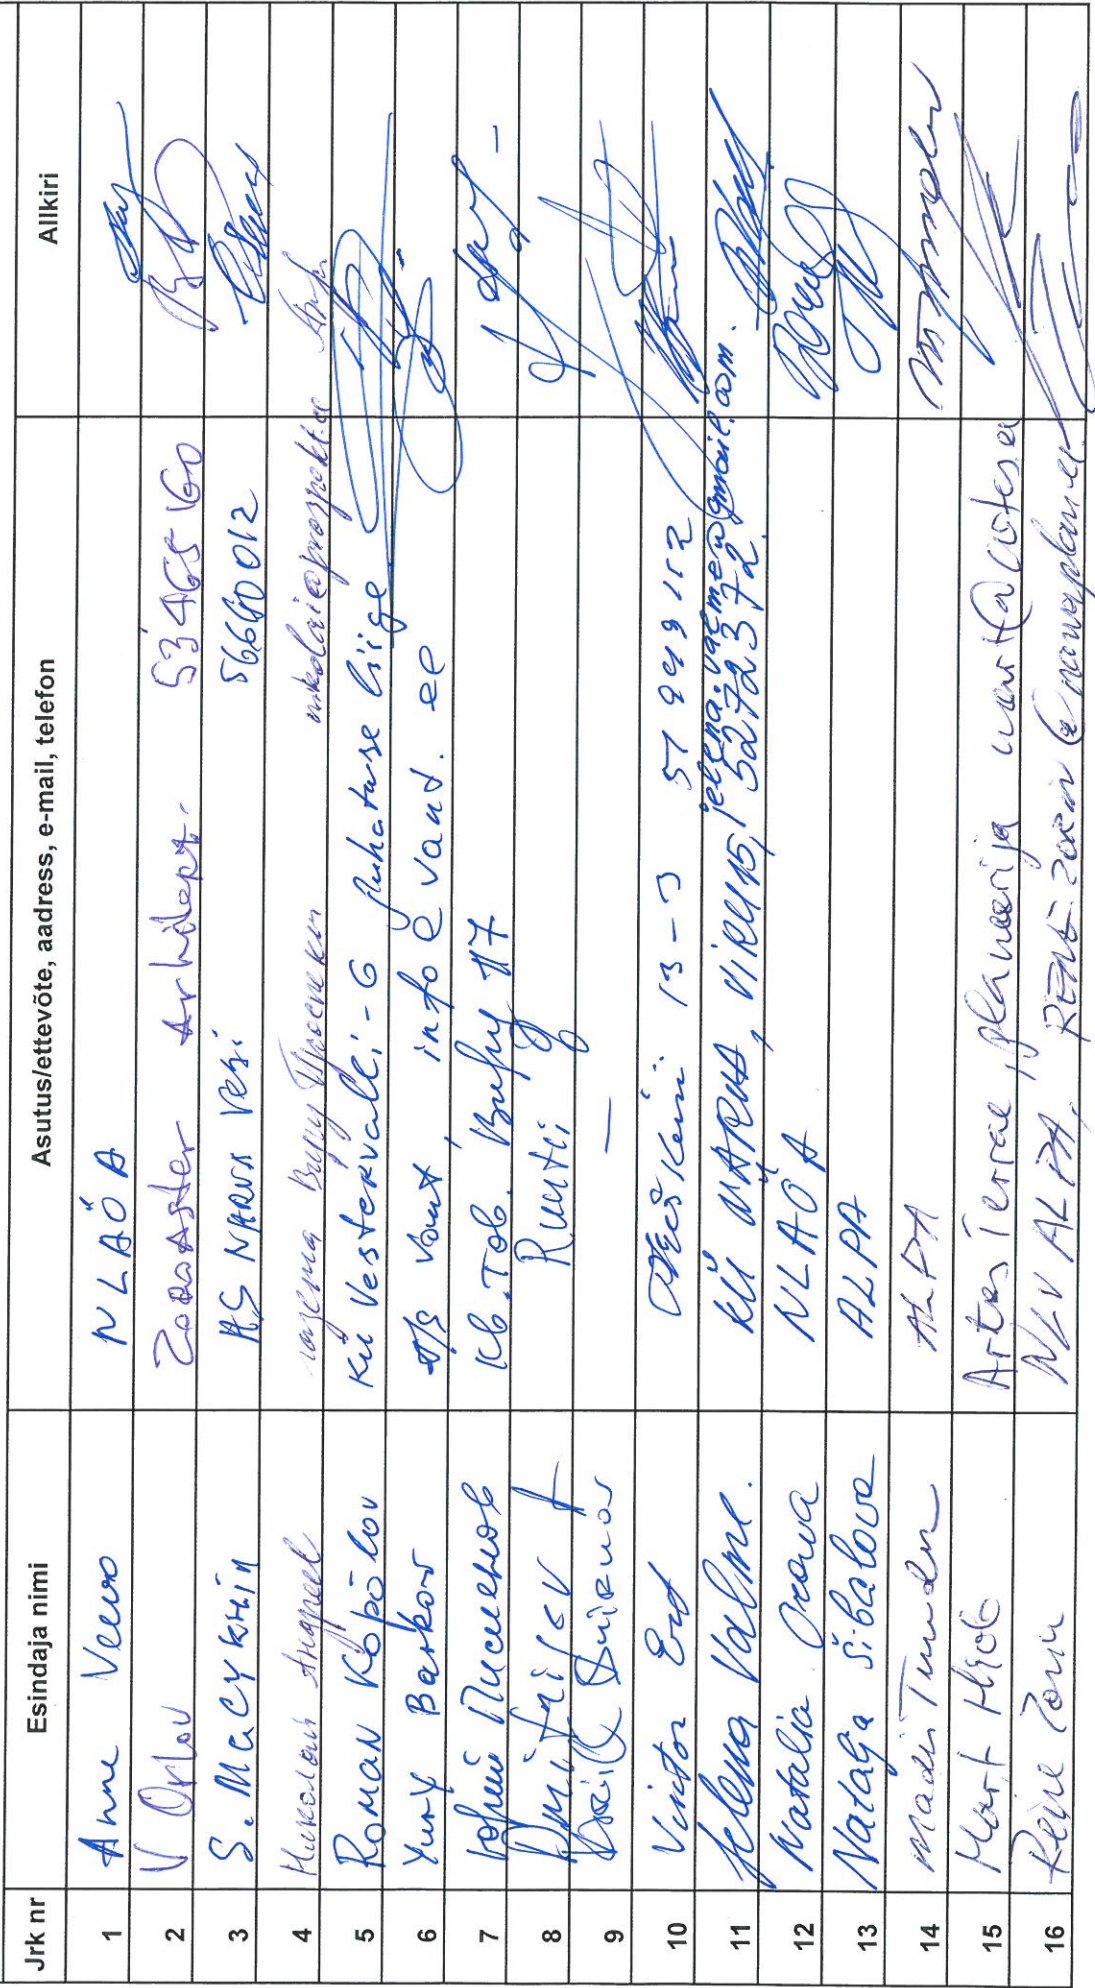 Jrk nr Esindaja nimi Asutus/ettevõte, aadress, e-mail, telefon Allkiri
1 Anne Veevo NLAÕA
2 V Orlov Zoroaster Arhidept. 53465160
3 S. McCYKHIN AS NARVA Vesi 56640012
4 Николай Андреев газета Виру Проспект nikolai@prospekt.ee
5 Roman Kõbõlov KÜ Vestervalli-6 juhatuse liige
6 Yury Barkov A/S Vant, info@vant.ee
7 Юрий Писценов Кв. Тов. Виру 17
8 Dmitrijev Ruutli 8
9 —
10 Viktor 13-3 51 949 152
11 Jelena Valme. KÜ NARVA, VIRU 15, jelena.valme@gmail.com. 5272372.
12 Natalia NLAÕA
13 Natalja Šibalova ALPA
14 Madis Tuuder ALPA
15 Mart Hiob Artes Terrae, planeerija mart@artes.ee
16 Rene Zorin NLV ALPA,